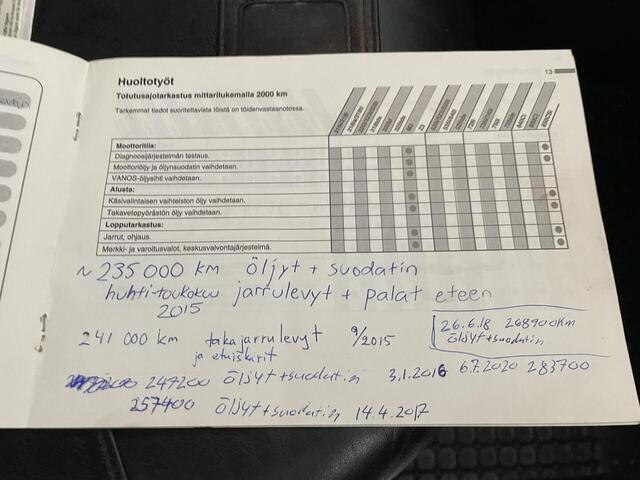 13
Huoltotyöt
Totutusajotarkastus mittarilukemalla 2000 km
Tarkemmat tiedot suoritettavista töistä on töidenvastaanotossa.
Moottoritila:
Diagnoosijärjestelmän testaus.
Moottoriöljy ja öljynsuodatin vaihdetaan.
VANOS-öljysihti vaihdetaan.
Alusta:
Käsivalintaisen vaihteiston öljy vaihdetaan.
Takavetopyörästön öljy vaihdetaan.
Lopputarkastus:
Jarrut, ohjaus.
Merkki- ja varoitusvalot, keskusvalvontajärjestelmä.
~ 235 000 km öljyt + suodatin
huhti-toukokuu jarrulevyt + palat eteen
2015
241 000 km takajarrulevyt 9/2015
ja etuiskarit
26.6.18 268900km
öljyt+suodatin
247200 öljyt+suodatin 3.1.2016 6.7.2020 283700
257400 öljyt+suodatin 14.4.2017